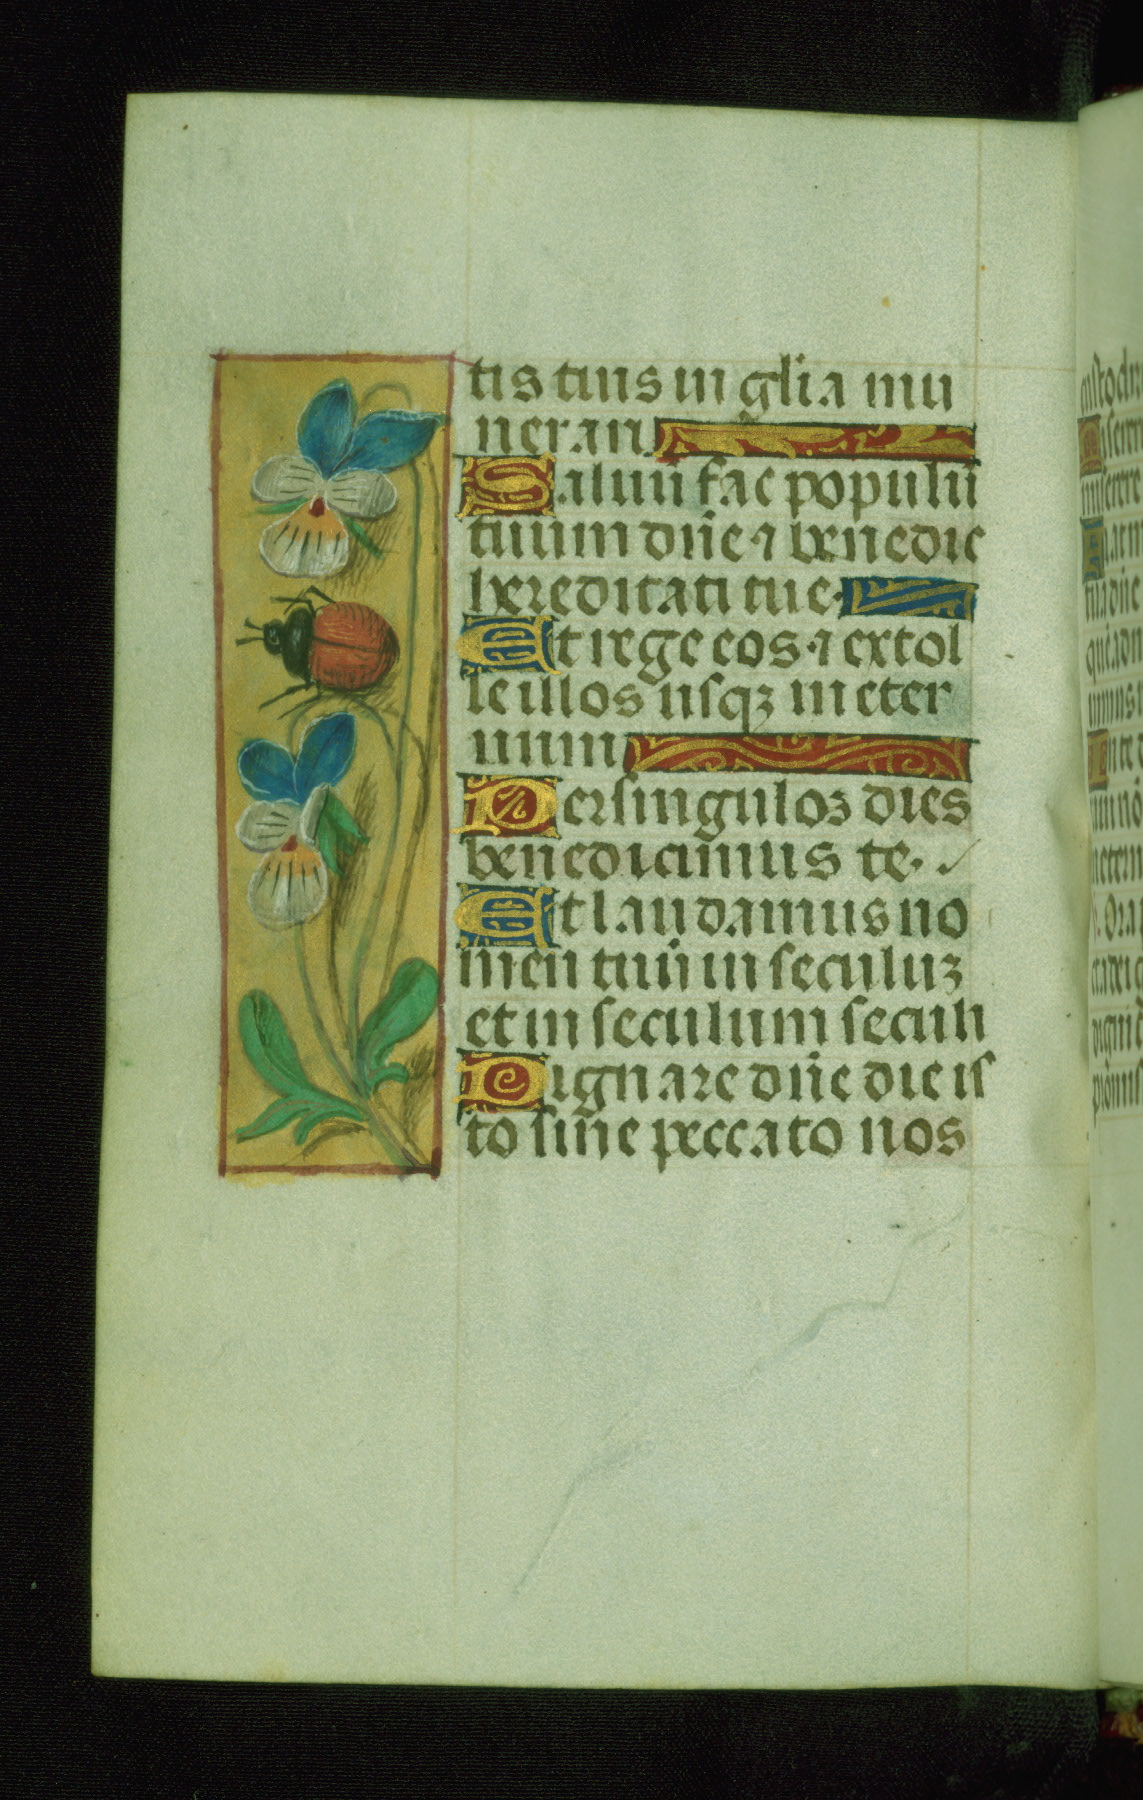 tis tuis in gl̄ia mu
nerari.
Saluū fac populū
tuum dn̄e ⁊ benedic
hereditati tue.
Et rege eos ⁊ extol
le illos usqꝫ in eter
num
Per singulos dies
benedicimus te.
Et laudamus no
men tuū in seculuꝫ
et in seculum seculi
Dignare dn̄e die is
to sine peccato nos